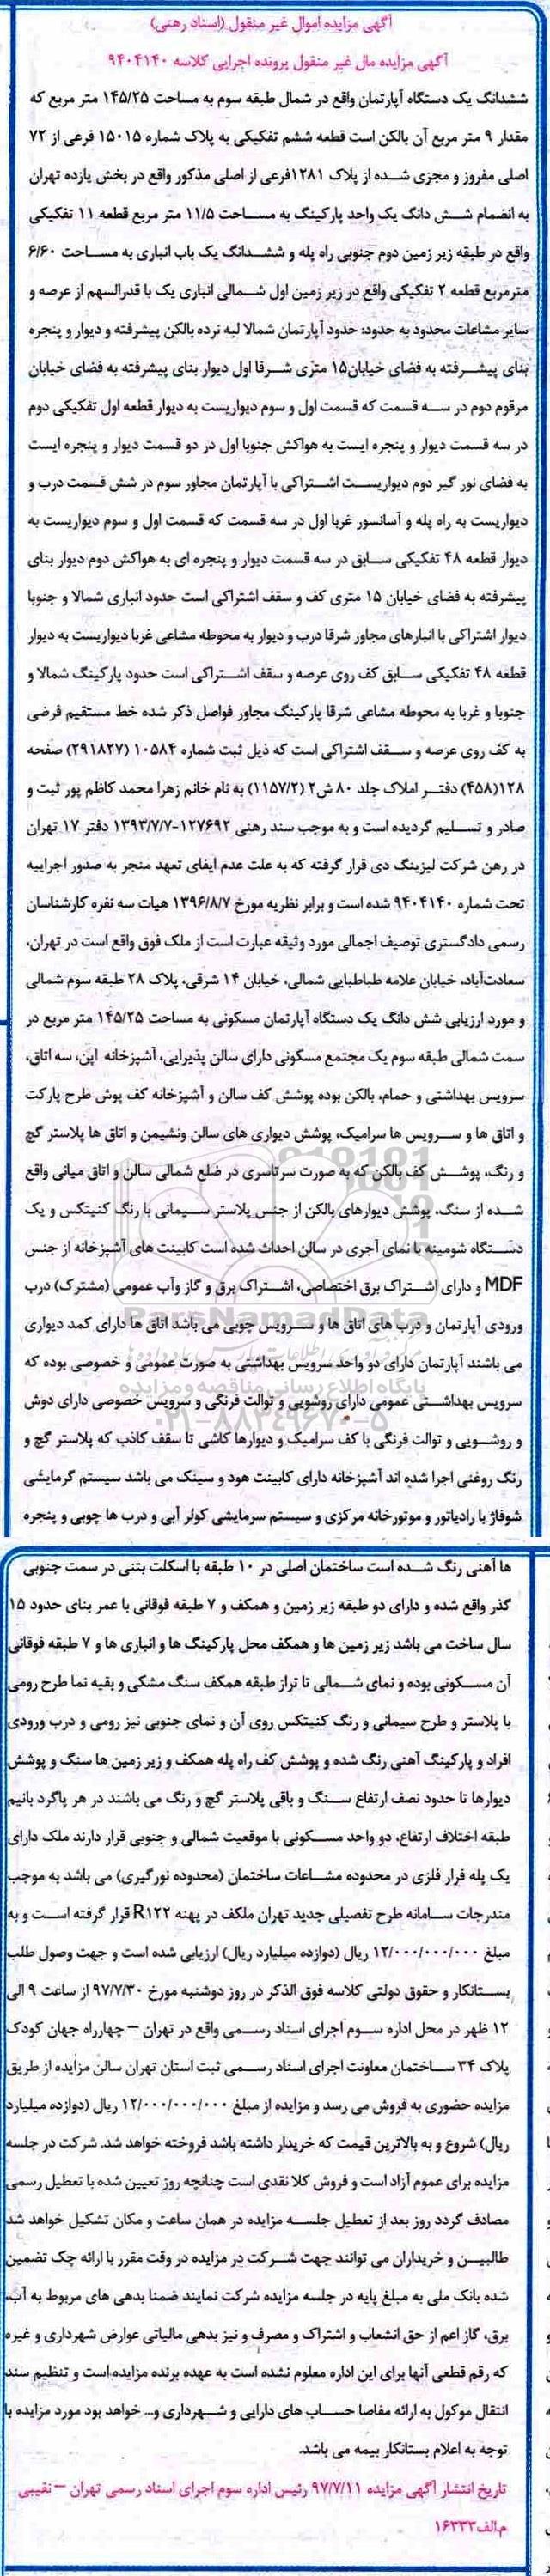 آگهی مزایده اموال غیر منقول (اسناد رهنی)
آگهی مزایده مال غیر منقول پرونده اجرایی کلاسه ۹۴۰۴۱۴۰
ششدانگ یک دستگاه آپارتمان واقع در شمال طبقه سوم به مساحت ۱۴۵/۲۵ متر مربع که
مقدار ۹ متر مربع آن بالکن است قطعه ششم تفکیکی به پلاک شماره ۱۵۰۱۵ فرعی از ۷۲
اصلی مفروز و مجزی شده از پلاک ۱۲۸۱فرعی از اصلی مذکور واقع در بخش یازده تهران
به انضمام شش دانگ یک واحد پارکینگ به مساحت ۱۱/۵ متر مربع قطعه ۱۱ تفکیکی
واقع در طبقه زیر زمین دوم جنوبی راه پله و ششدانگ یک باب انباری به مساحت ۶/۶۰
مترمربع قطعه ۲ تفکیکی واقع در زیر زمین اول شمالی انباری یک با قدرالسهم از عرصه و
سایر مشاعات محدود به حدود: حدود آپارتمان شمالا لبه نرده بالکن پیشرفته و دیوار و پنجره
بنای پیشرفته به فضای خیابان۱۵ متری شرقا اول دیوار بنای پیشرفته به فضای خیابان
مرقوم دوم در سه قسمت که قسمت اول و سوم دیواریست به دیوار قطعه اول تفکیکی دوم
در سه قسمت دیوار و پنجره ایست به هواکش جنوبا اول در دو قسمت دیوار و پنجره ایست
به فضای نور گیر دوم دیواریست اشتراکی با آپارتمان مجاور سوم در شش قسمت درب و
دیواریست به راه پله و آسانسور غربا اول در سه قسمت که قسمت اول و سوم دیواریست به
دیوار قطعه ۴۸ تفکیکی سابق در سه قسمت دیوار و پنجره ای به هواکش دوم دیوار بنای
پیشرفته به فضای خیابان ۱۵ متری کف و سقف اشتراکی است حدود انباری شمالا و جنوبا
دیوار اشتراکی با انبارهای مجاور شرقا درب و دیوار به محوطه مشاعی غربا دیواریست به دیوار
قطعه ۴۸ تفکیکی سابق کف روی عرصه و سقف اشتراکی است حدود پارکینگ شمالا و
جنوبا و غربا به محوطه مشاعی شرقا پارکینگ مجاور فواصل ذکر شده خط مستقیم فرضی
به کف روی عرصه و سقف اشتراکی است که ذیل ثبت شماره ۱۰۵۸۴ (۲۹۱۸۲۷) صفحه
۱۲۸(۴۵۸) دفتر املاک جلد ۸۰ ش۲ (۱۱۵۷/۲) به نام خانم زهرا محمد کاظم پور ثبت و
صادر و تسلیم گردیده است و به موجب سند رهنی ۱۲۷۶۹۲-۱۳۹۳/۷/۷ دفتر ۱۷ تهران
در رهن شرکت لیزینگ دی قرار گرفته که به علت عدم ایفای تعهد منجر به صدور اجراییه
تحت شماره ۹۴۰۴۱۴۰ شده است و برابر نظریه مورخ ۱۳۹۶/۸/۷ هیات سه نفره کارشناسان
رسمی دادگستری توصیف اجمالی مورد وثیقه عبارت است از ملک فوق واقع است در تهران،
سعادت‌آباد، خیابان علامه طباطبایی شمالی، خیابان ۱۴ شرقی، پلاک ۲۸ طبقه سوم شمالی
و مورد ارزیابی شش دانگ یک دستگاه آپارتمان مسکونی به مساحت ۱۴۵/۲۵ متر مربع در
سمت شمالی طبقه سوم یک مجتمع مسکونی دارای سالن پذیرایی، آشپزخانه اپن، سه اتاق،
سرویس بهداشتی و حمام، بالکن بوده پوشش کف سالن و آشپزخانه کف پوش طرح پارکت
و اتاق ها و سرویس ها سرامیک، پوشش دیواری های سالن ونشیمن و اتاق ها پلاستر گچ
و رنگ، پوشش کف بالکن که به صورت سرتاسری در ضلع شمالی سالن و اتاق میانی واقع
شده از سنگ، پوشش دیوارهای بالکن از جنس پلاستر سیمانی با رنگ کنیتکس و یک
دستگاه شومینه با نمای آجری در سالن احداث شده است کابینت های آشپزخانه از جنس
MDF و دارای اشتراک برق اختصاصی، اشتراک برق و گاز وآب عمومی (مشترک) درب
ورودی آپارتمان و درب های اتاق ها و سرویس چوبی می باشد اتاق ها دارای کمد دیواری
می باشند آپارتمان دارای دو واحد سرویس بهداشتی به صورت عمومی و خصوصی بوده که
سرویس بهداشتی عمومی دارای روشویی و توالت فرنگی و سرویس خصوصی دارای دوش
و روشویی و توالت فرنگی با کف سرامیک و دیوارها کاشی تا سقف کاذب که پلاستر گچ و
رنگ روغنی اجرا شده اند آشپزخانه دارای کابینت هود و سینک می باشد سیستم گرمایشی
شوفاژ با رادیاتور و موتورخانه مرکزی و سیستم سرمایشی کولر آبی و درب ها چوبی و پنجره
ها آهنی رنگ شده است ساختمان اصلی در ۱۰ طبقه با اسکلت بتنی در سمت جنوبی
گذر واقع شده و دارای دو طبقه زیر زمین و همکف و ۷ طبقه فوقانی با عمر بنای حدود ۱۵
سال ساخت می باشد زیر زمین ها و همکف محل پارکینگ ها و انباری ها و ۷ طبقه فوقانی
آن مسکونی بوده و نمای شمالی تا تراز طبقه همکف سنگ مشکی و بقیه نما طرح رومی
با پلاستر و طرح سیمانی و رنگ کنیتکس روی آن و نمای جنوبی نیز رومی و درب ورودی
افراد و پارکینگ آهنی رنگ شده و پوشش کف راه پله همکف و زیر زمین ها سنگ و پوشش
دیوارها تا حدود نصف ارتفاع سنگ و باقی پلاستر گچ و رنگ می باشند در هر پاگرد بانیم
طبقه اختلاف ارتفاع، دو واحد مسکونی با موقعیت شمالی و جنوبی قرار دارند ملک دارای
یک پله فرار فلزی در محدوده مشاعات ساختمان (محدوده نورگیری) می باشد به موجب
مندرجات سامانه طرح تفصیلی جدید تهران ملکف در پهنه R۱۲۲ قرار گرفته است و به
مبلغ ۱۲/۰۰۰/۰۰۰/۰۰۰ ریال (دوازده میلیارد ریال) ارزیابی شده است و جهت وصول طلب
بستانکار و حقوق دولتی کلاسه فوق الذکر در روز دوشنبه مورخ ۹۷/۷/۳۰ از ساعت ۹ الی
۱۲ ظهر در محل اداره سوم اجرای اسناد رسمی واقع در تهران – چهارراه جهان کودک
پلاک ۳۴ ساختمان معاونت اجرای اسناد رسمی ثبت استان تهران سالن مزایده از طریق
مزایده حضوری به فروش می رسد و مزایده از مبلغ ۱۲/۰۰۰/۰۰۰/۰۰۰ ریال (دوازده میلیارد
ریال) شروع و به بالاترین قیمت که خریدار داشته باشد فروخته خواهد شد. شرکت در جلسه
مزایده برای عموم آزاد است و فروش کلا نقدی است چنانچه روز تعیین شده با تعطیل رسمی
مصادف گردد روز بعد از تعطیل جلسه مزایده در همان ساعت و مکان تشکیل خواهد شد
طالبین و خریداران می توانند جهت شرکت در مزایده در وقت مقرر با ارائه چک تضمین
شده بانک ملی به مبلغ پایه در جلسه مزایده شرکت نمایند ضمنا بدهی های مربوط به آب،
برق، گاز اعم از حق انشعاب و اشتراک و مصرف و نیز بدهی مالیاتی عوارض شهرداری و غیره
که رقم قطعی آنها برای این اداره معلوم نشده است به عهده برنده مزایده است و تنظیم سند
انتقال موکول به ارائه مفاصا حساب های دارایی و شهرداری و... خواهد بود مورد مزایده با
توجه به اعلام بستانکار بیمه می باشد.
تاریخ انتشار آگهی مزایده ۹۷/۷/۱۱ رئیس اداره سوم اجرای اسناد رسمی تهران – نقیبی
م.الف۱۶۳۳۳
ParsNamadData
پایگاه اطلاع رسانی مناقصه و مزایده
۰۲۱-۸۸۳۴۹۶۷۰-۵